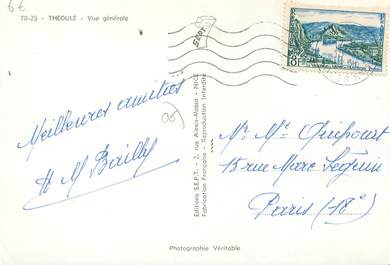 6€
70-25 - THEOULE - Vue générale
8F
Meilleures amitiés
H M Bailly
06
Editions S.E.P.T. - 2, rue Alexis-Mossa - NICE
Fabrication Française - Reproduction Interdite
Mr Me
15 rue Marc Séguin
Paris (18e)
Photographie Véritable